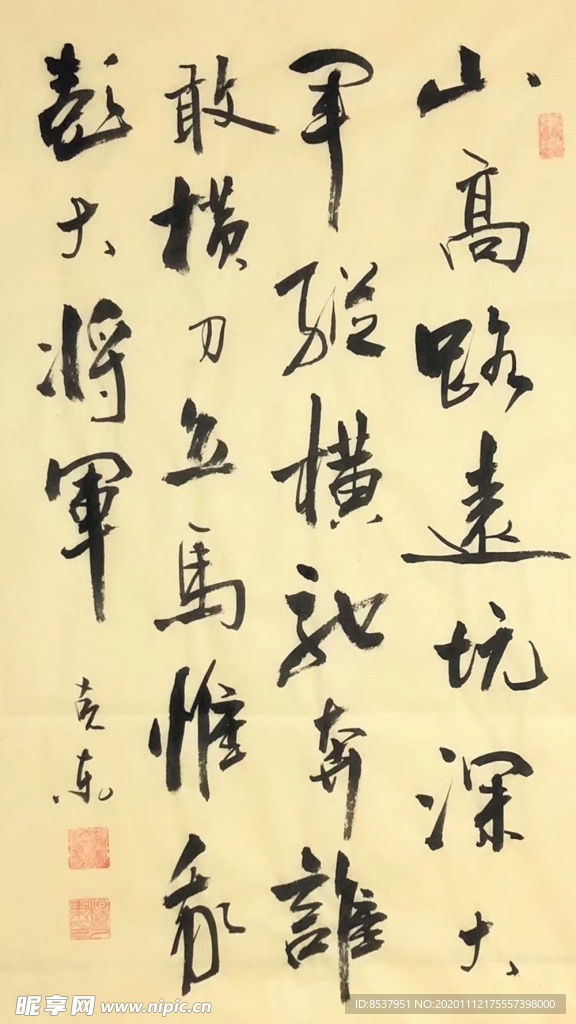 山高路遠坑深大
軍縱橫馳奔誰
敢横刀立馬惟我
彭大将軍
克東
昵享网 www.nipic.cn
ID:8537951 NO:20201112175557398000